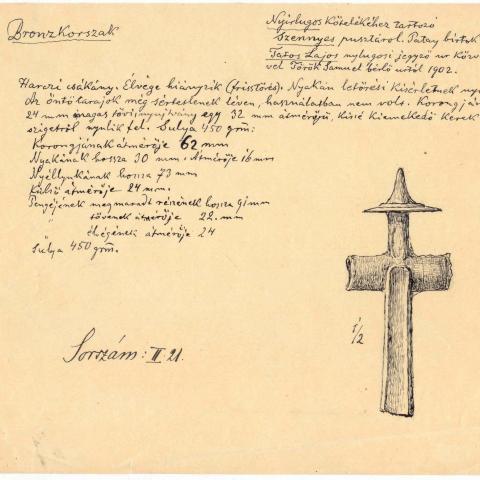 Bronzkorszak
Nyirlugos Kötelékéhez tartozó
Szennyes pusztáról. Patay birtok
Tatos Lajos nylugosi jegyző ur Köz
vel Török Samuel bérlő urtól 1902.
Harczi csákány. Elvége hiányzik (frisstörés). Nyakán letörési Kisérletnek ny
Az öntő tarajok még sértetlenek lévén, használatban nem volt. Korong
24 mm magas törs nyujtvány egy 32 mm átmérőjü, Kissé Kiemelkedő Kerek
szigetről nyulik fel. Sulya 450 grm:
Korongjának átmérője 62 mm
Nyakának hossza 30 mm. Átmérője 16 mm
Nyéllyukának hossza 73 mm
Külső átmérője 24 mm.
Pengéjének megmaradt részének hossza 91 mm
" tövének átmérője 22. mm
" átmérője 24
Sulya 450 grm.
1/2
Sorszám: II 21.